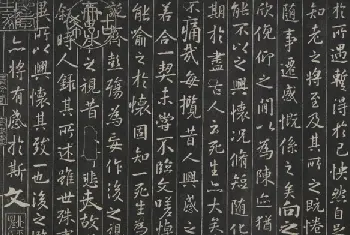 於所遇暫得於己快然自
知老之將至及其所之既倦
隨事遷感慨係之矣向之
欣俛仰之間以為陳迹猶
能不以之興懷況脩短隨
期於盡古人云死生亦大矣
不痛哉每攬昔人興感之
若合一契未嘗不臨文嗟悼
能喻之於懷固知一死生為
齊彭殤為妄作後之視
之視昔悲夫故
時人錄其所述雖世殊
異所以興懷其致一也後之
亦將有感於斯文